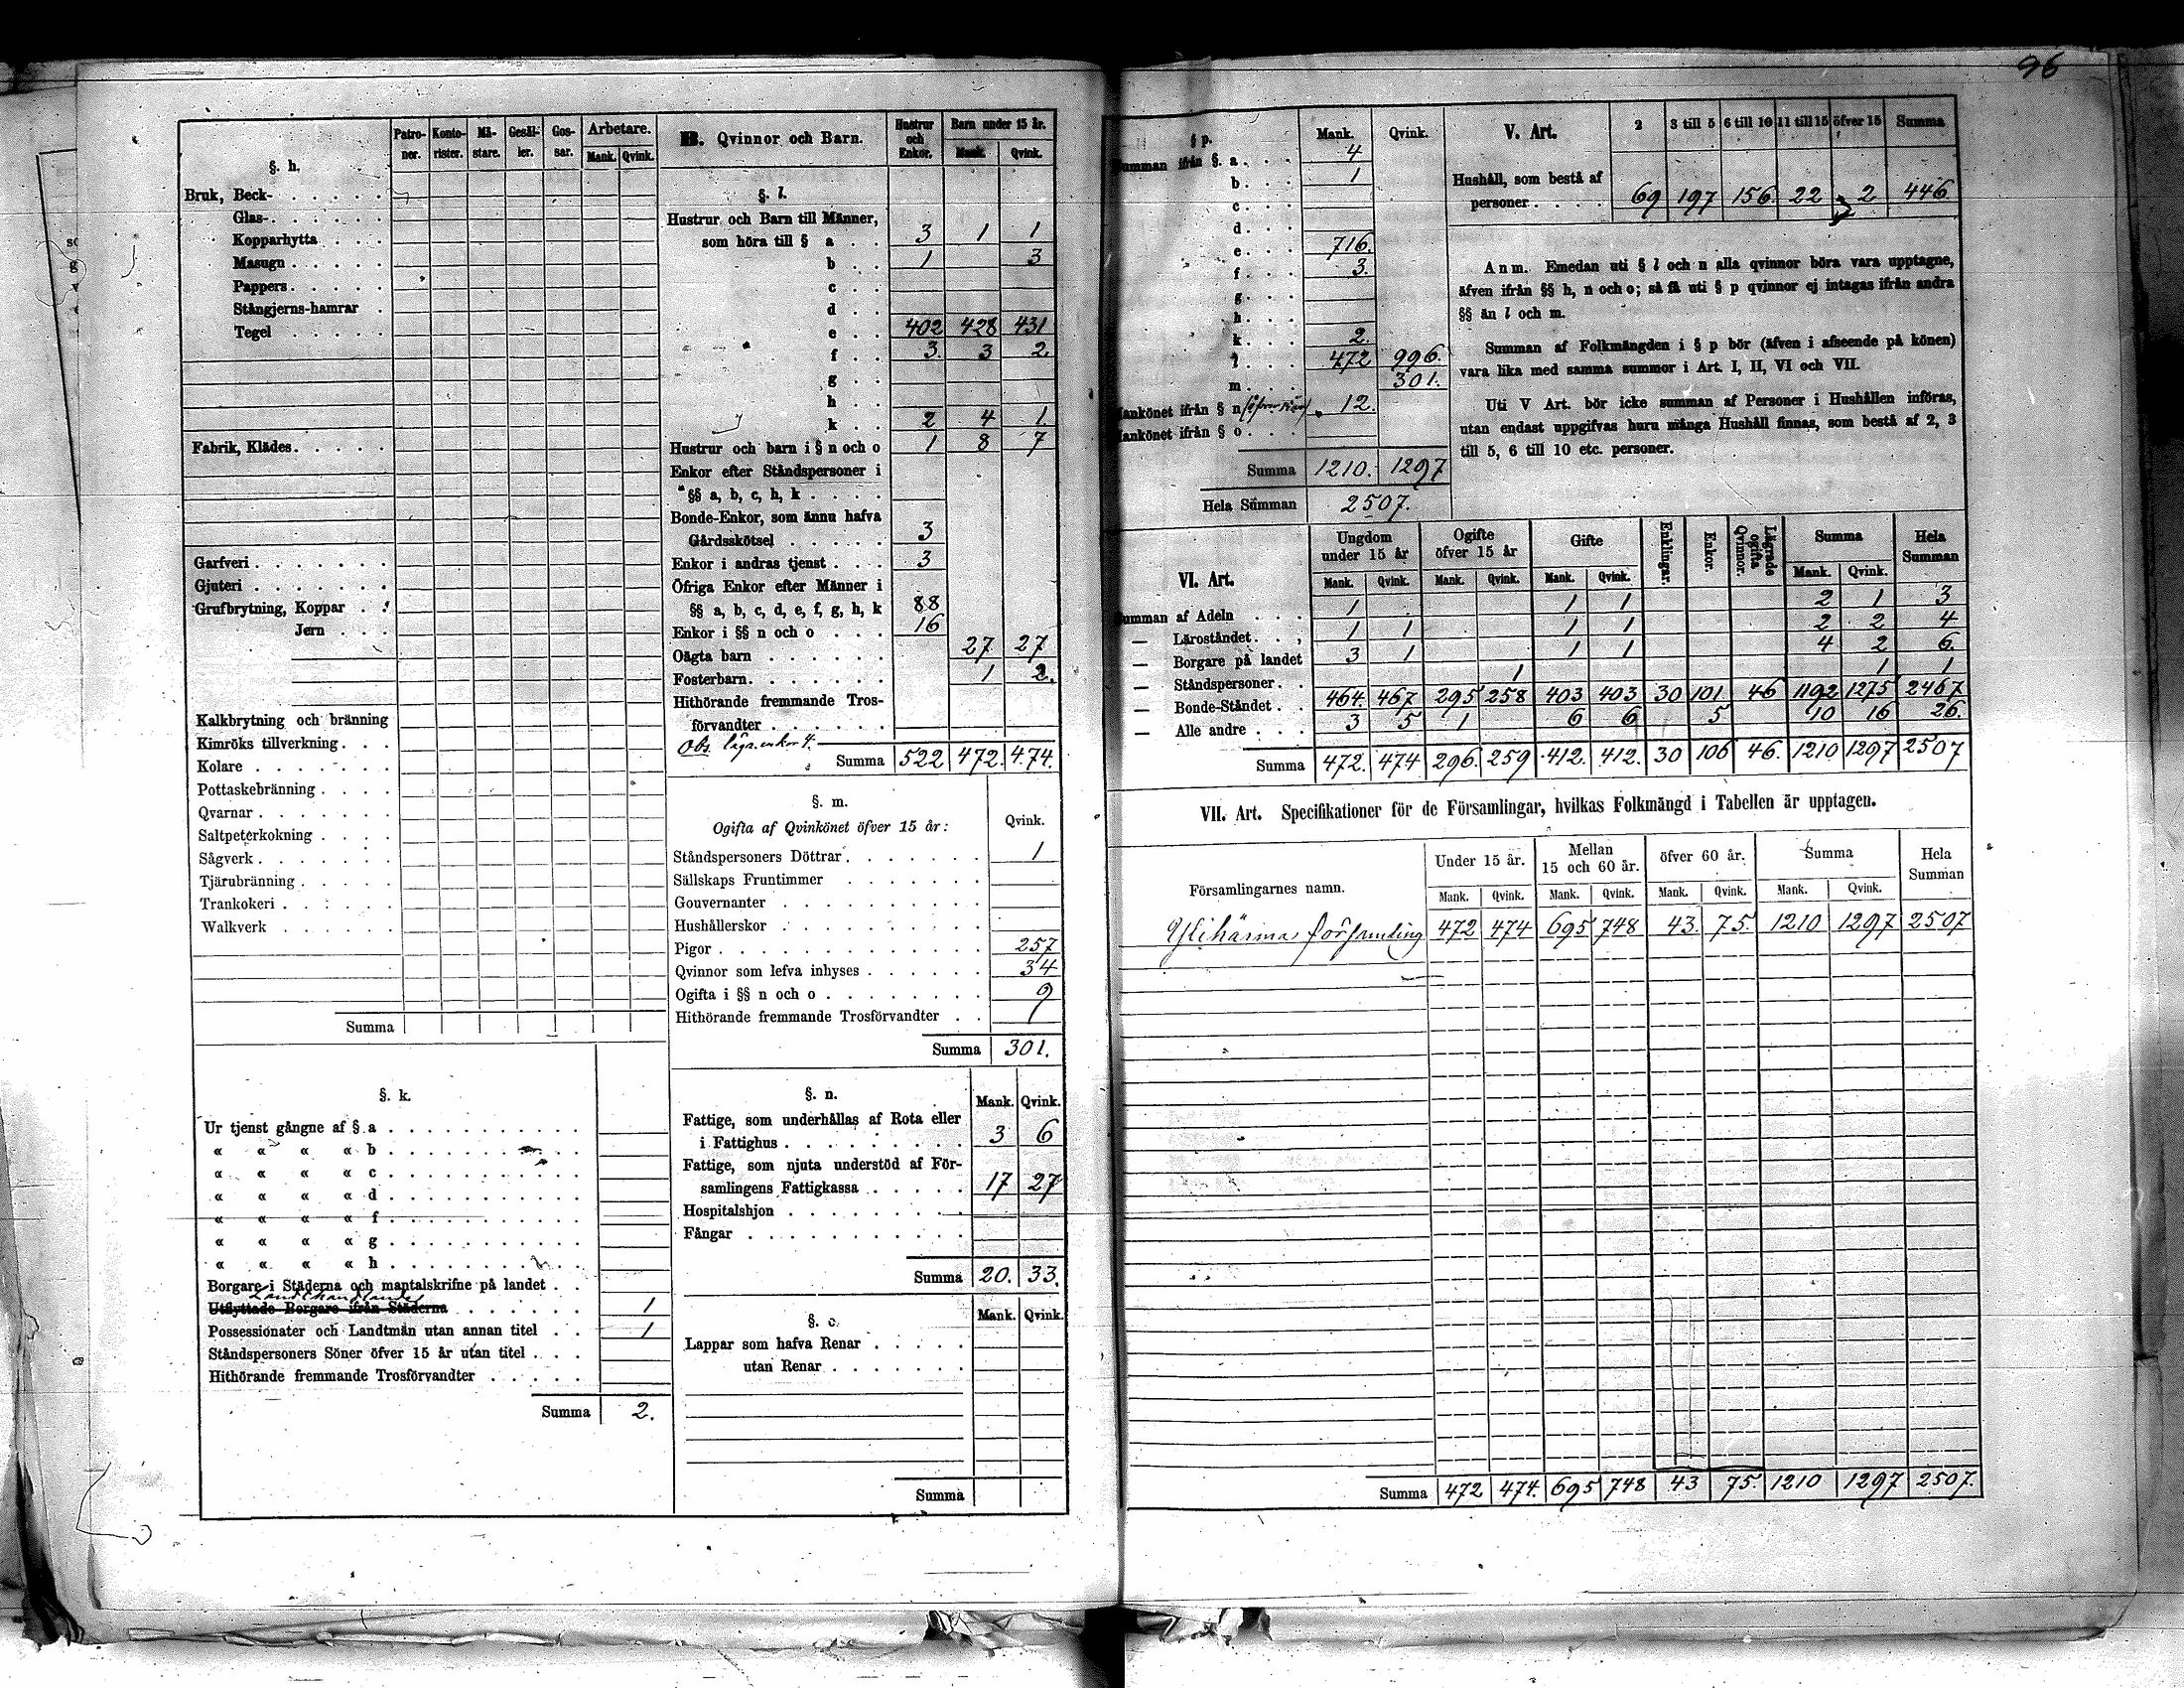 96
§. h.
Patro-ner. Konto-rister. Må-stare. Gesäl-ler. Gos-sar. Arbetare. Mank. Qvink.
Bruk, Beck-
Glas-
Kopparhytta
Masugn
Pappers
Stångjerns-hamrar
Tegel
Fabrik, Klädes
Garfveri
Gjuteri
Grufbrytning, Koppar
Jern
Kalkbrytning och bränning
Kimröks tillverkning
Kolare
Pottaskebränning
Qvarnar
Saltpeterkokning
Sågverk
Tjärubränning
Trankokeri
Walkverk
Summa
§. k.
Ur tjenst gångne af § a
« « « « b
« « « « c
« « « « d
« « « « f
« « « « g
« « « « h
Borgare i Städerna och mantalskrifne på landet
Landthandlande
Utflyttade Borgare ifrån Städerna 1
Possessionater och Landtmän utan annan titel 1
Ståndspersoners Söner öfver 15 år utan titel
Hithörande fremmande Trosförvandter
Summa 2.
B. Qvinnor och Barn.
Hustrur och Enkor. Barn under 15 år. Mank. Qvink.
§. l.
Hustrur och Barn till Männer,
som höra till § a 3 1 1
b 1 3
c
d
e 402 428 431
f 3. 3 2.
g
h
k 2 4 1.
Hustrur och barn i § n och o 1 8 7
Enkor efter Ståndspersoner i
§§ a, b, c, h, k
Bonde-Enkor, som ännu hafva
Gårdsskötsel 3
Enkor i andras tjenst 3
Öfriga Enkor efter Männer i
§§ a, b, c, d, e, f, g, h, k 88
Enkor i §§ n och o 16
Oägta barn 27 27
Fosterbarn 1 2.
Hithörande fremmande Tros-
förvandter
Obs. lägr. enkor 4.
Summa 522 472. 474.
§. m.
Ogifta af Qvinkönet öfver 15 år: Qvink.
Ståndspersoners Döttrar 1
Sällskaps Fruntimmer
Gouvernanter
Hushållerskor
Pigor 257
Qvinnor som lefva inhyses 34
Ogifta i §§ n och o 9
Hithörande fremmande Trosförvandter
Summa 301.
§. n. Mank. Qvink.
Fattige, som underhållas af Rota eller
i Fattighus 3 6
Fattige, som njuta understöd af För-
samlingens Fattigkassa 17 27
Hospitalshjon
Fångar
Summa 20. 33.
§. o. Mank. Qvink.
Lappar som hafva Renar
utan Renar
Summa
§ p. Mank. Qvink.
Summan ifrån §. a 4
b 1
c
d
e 716.
f 3.
g
h
k 2.
l 472 996.
m 301.
Mankönet ifrån § n 12.
Mankönet ifrån § o
Summa 1210. 1297
Hela Summan 2507.
V. Art. 2 3 till 5 6 till 10 11 till 15 öfver 15 Summa
Hushåll, som bestå af
personer 69 197 156 22 2 446
Anm. Emedan uti § l och n alla qvinnor böra vara upptagne,
äfven ifrån §§ h, n och o; så få uti § p qvinnor ej intagas ifrån andra
§§ än l och m.
Summan af Folkmängden i § p bör (äfven i afseende på könen)
vara lika med samma summor i Art. I, II, VI och VII.
Uti V Art. bör icke summan af Personer i Hushållen införas,
utan endast uppgifvas huru många Hushåll finnas, som bestå af 2, 3
till 5, 6 till 10 etc. personer.
VI. Art.
Ungdom under 15 år Ogifte öfver 15 år Gifte Enklingar. Enkor. Lägrade ogifta Qvinnor. Summa Hela Summan
Mank. Qvink. Mank. Qvink. Mank. Qvink. Mank. Qvink.
Summan af Adeln 1 1 1 2 1 3
— Läroståndet 1 1 1 1 2 2 4
— Borgare på landet 3 1 1 1 4 2 6.
— Ståndspersoner 1 1 1
— Bonde-Ståndet 464. 467 295 258 403 403 30 101 46 1192 1275 2467
— Alle andre 3 5 1 6 6 5 10 16 26.
Summa 472. 474 296. 259 412. 412. 30 106 46. 1210 1297 2507
VII. Art. Specifikationer för de Församlingar, hvilkas Folkmängd i Tabellen är upptagen.
Församlingarnes namn. Under 15 år. Mellan 15 och 60 år. öfver 60 år. Summa Hela Summan
Mank. Qvink. Mank. Qvink. Mank. Qvink. Mank. Qvink.
Ylihärmä församling 472 474 695 748 43. 75. 1210 1297 2507
Summa 472 474. 695 748 43 75. 1210 1297 2507.